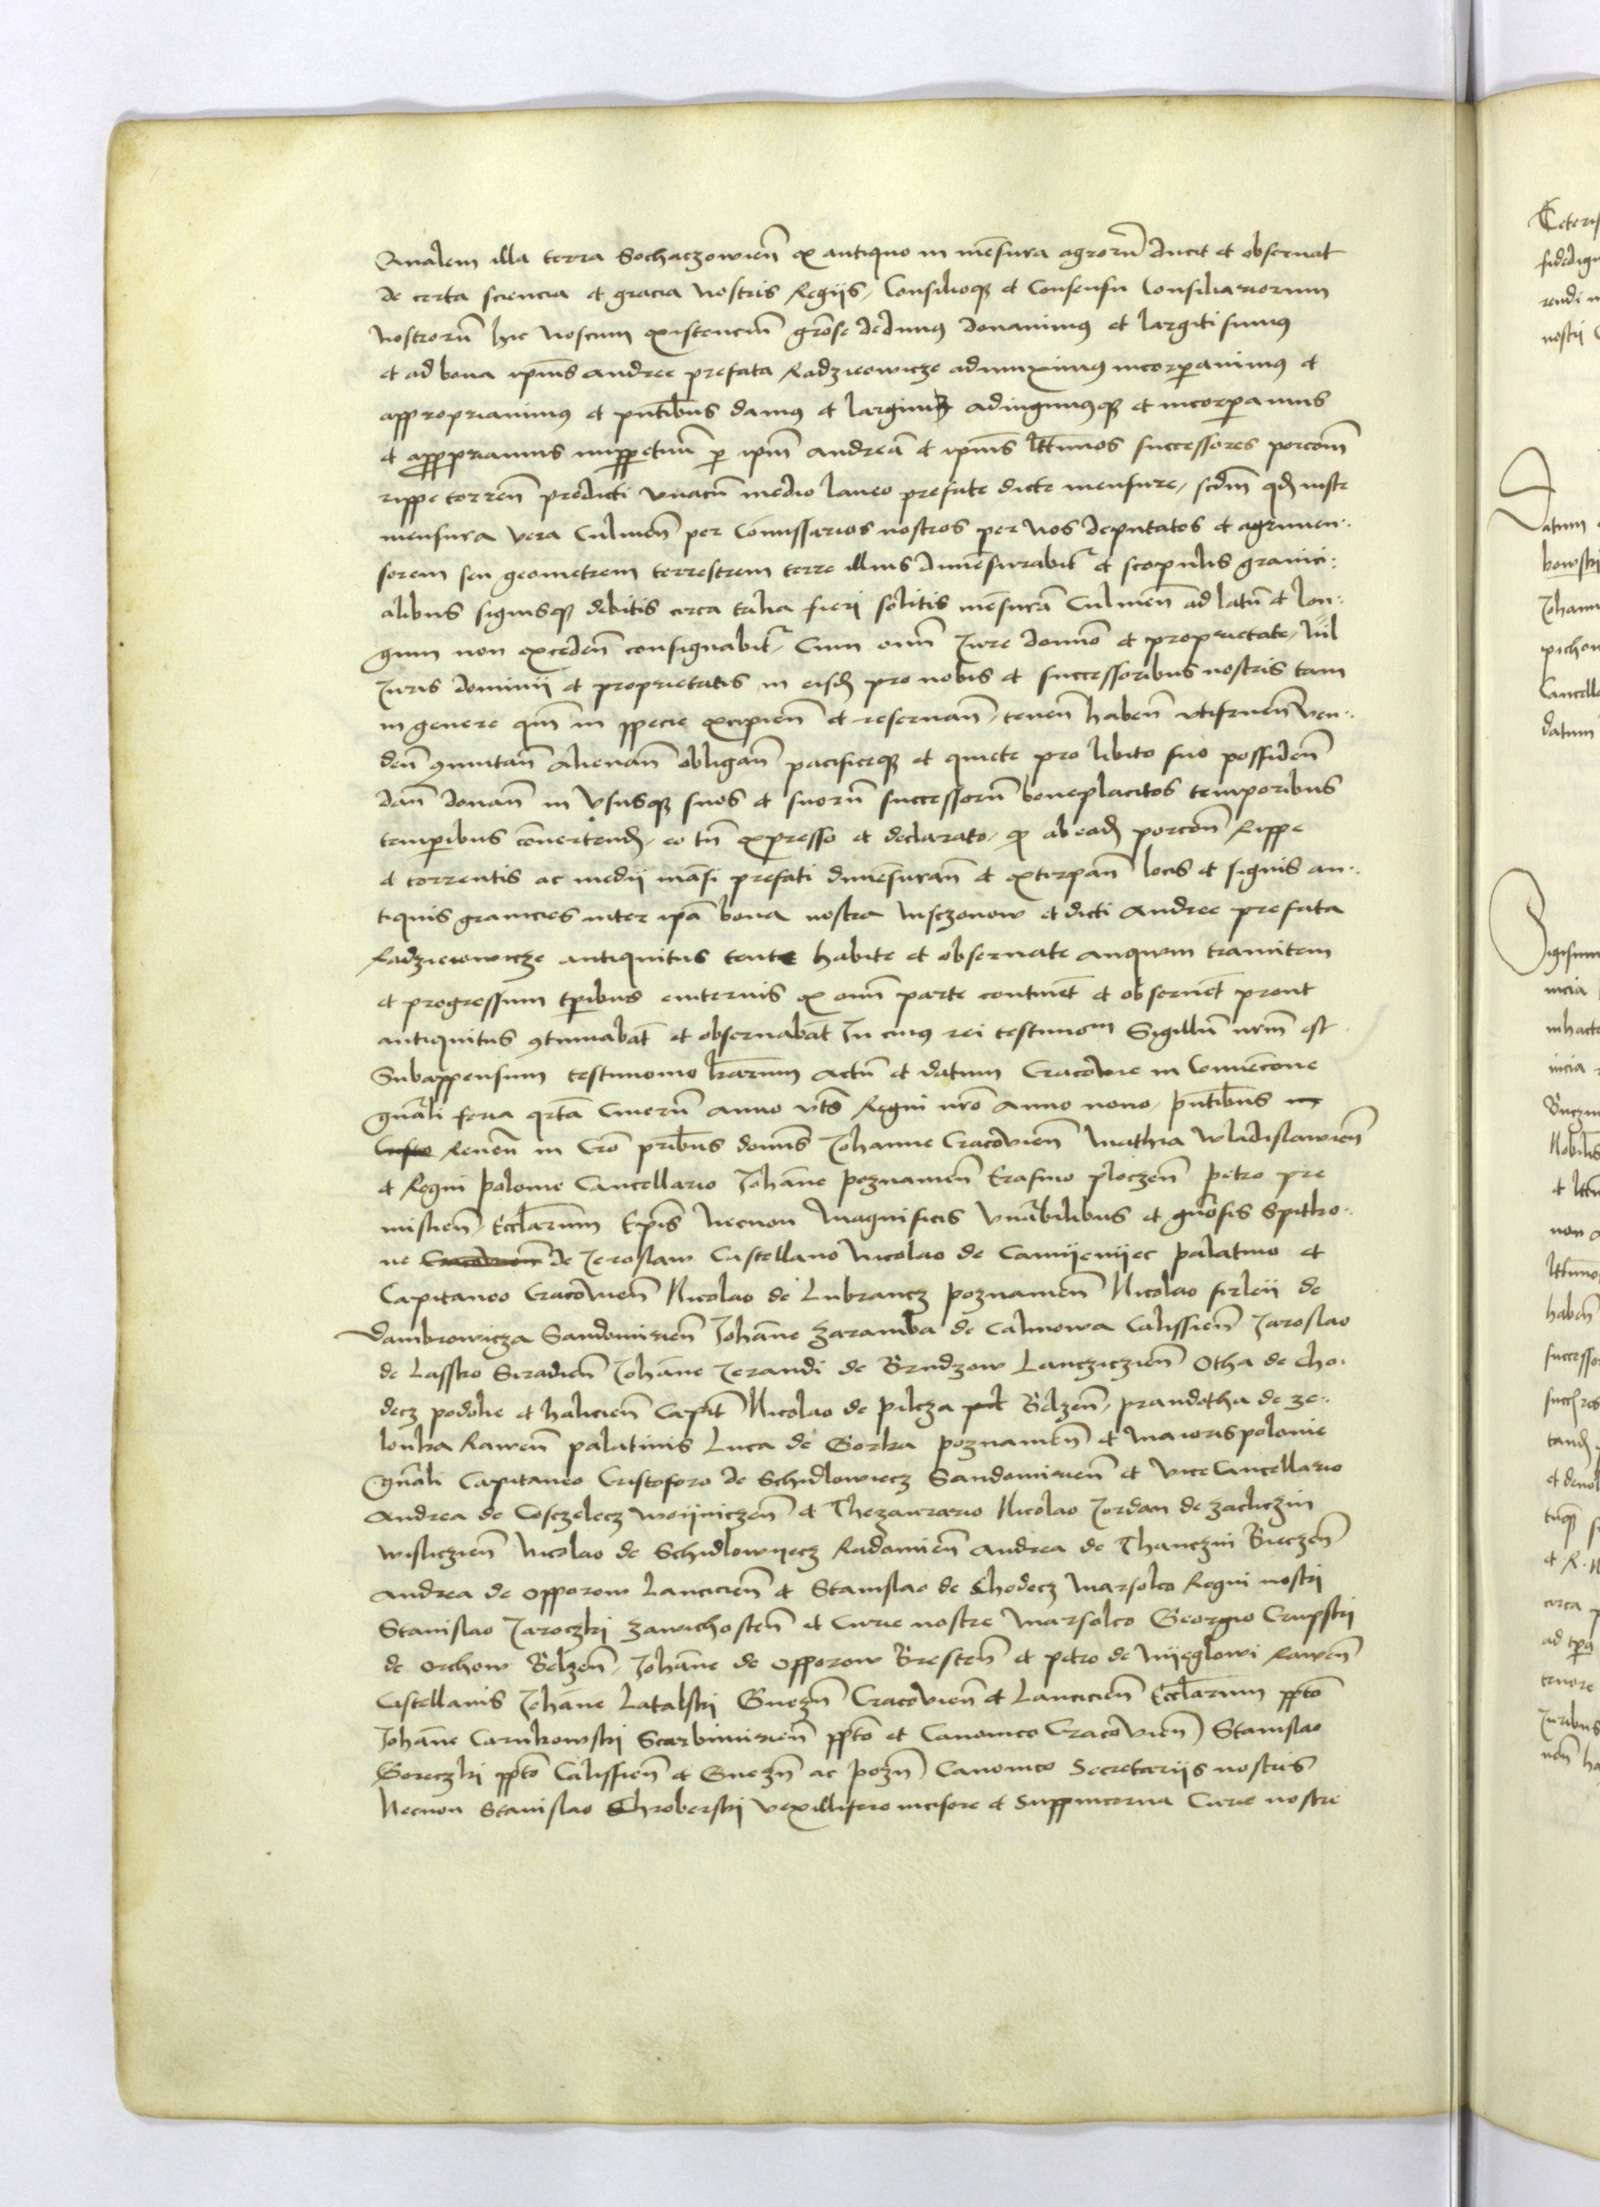 Qualem illa terra Sochaczowien̄ ex antiquo in mēsura agrorū ducit et obseruat
de certa sciencia et gracia nostris Regijs, Consilioqꝫ et Consensu Consiliariorum
nostrorū hic noscum existenciū gr̄ose dedimus donauimus et largiti sumus
et ad bona ip̄ius andree prefata Radzieiowicze adiunximus incorꝑauimus et
appropriauimus et pn̄tibus damus et largimur adiungimusqꝫ et incorꝑamus
et appropriamus imꝑpetuū ꝑ ip̄m andreā et ip̄ius ltt̄imos successores porcōm
rippe torren̄ predicti vnacū medio laneo prefate dicte mensure, scdm̄ qd̄ iuste
mensura vera Culmen̄ per Comissarios nostros per nos deputatos et agrimen-
sorem seu geometrem terrestrem terre illius dimēsurabitr̄ et scopulis granici-
alibus signisqꝫ debitis circa talia fieri solitis mēsurā Culmen̄ ad latū et lon-
gum non exceden̄ consignabitr̄, Cum om̄i Jure domīo et proprietate, Nil
Juris dominij et proprietatis in eisd̄ pro nobis et successoribus nostris tam
in genere qm̄ in specie excipien̄ et reseruan̄, tenen̄ haben̄ vtifruen̄ ven-
den̄ ꝯmutan̄ alienan̄ obligan̄ pacificeqꝫ et quiete pro libito suo possiden̄
dan̄ donan̄ in vsusqꝫ suos et suorū successorū beneplacitos temporibus
temꝑibus cōuertend̄, eo tn̄ expresso et declarato, qꝫ ab ead̄ porcōn̄ Rippe
et torrentis ac medij māsi prefati dimēsuran̄ et extirpan̄ locis et signis an-
tiquis granicies inter ip̄a bona nostra Msczonow et dicti andree prefata
Radzieiowicze antiquitus tente habite et obseruate anquem tramitem
et progressum tꝑibus euiternis ex om̄i parte contineāt et obseruēt prout
antiquitus ꝯtinuabāt et obseruabāt In cuius rei testimoniū Sigillū nr̄m est
Subappensum testimonio lr̄arum actū et datum Cracouie in Conuēcione
gn̄ali feria qrta Cinerū anno vts̄ Regni nr̄o anno nono, pn̄tibus
Reuen̄ in Cro pr̄ibus domīs Johanne Cracouien̄ Mathia Wladislauien̄
et Regni Polonie Cancellario Johāne Poznanien̄ Erasmo ploczen̄ petro pre
mislien̄ Eccl̄arum Epīs Necnon Magnificis Vn̄abilibus et gn̄osis Spitko-
ne de Jeroslaw Castellano Nicolao de Camijenijec palatino et
Capitaneo Cracouien̄ Nicolao de Lubrancz Poznanien̄ Nicolao firleij de
Dambrowicza Sandomirien̄ Johāne Zaramba de Calinowa Calissien̄ Jaroslao
de Lassko Siradien̄ Johāne Jerandi de Brudzow Lancziczien̄ Otha de Cho-
decz podolie et halicien̄ Capit̄ Nicolao de pilcza Belzen̄, prandotha de ze-
lonka Rawen̄ palatinis Luca de Gorka Poznanien̄ et Maiorispolonie
Gn̄ali Capitaneo Cristoforo de Schidlowiecz Sandomirien̄ et viceCancellario
Andrea de Cosczelecz woijniczen̄ et Thezaurario Nicolao Jordan de zacliczin
wisliczien̄ Nicolao de Schidlowijecz Radomien̄ Andrea de Thanczin Bieczen̄
Andrea de Opporow Lancicien̄ et Stanislao de Chodecz Marsalco Regni nostri
Stanislao Jaroczki zawichosten̄ et Curie nostre Marsalco Georgio Crupski
de Orchow Belzen̄, Johāne de Opporow Bresten̄ et petro de Mijeglowi Rawen̄
Castellanis Johāne Latalski Gnezn̄ Cracouien̄ et Lancicien̄ Eccl̄arum ppto
Johāne Carnkowski Scarbimirien̄ ppto et Canonico Cracouien̄ Stanislao
Goreczki ppto Calissien̄ et Gnezn̄ ac pozn̄ Canonico Secretarijs nostris
Necnon Stanislao Chroberski vexillifero incisore et Suppincerna Curie nostre